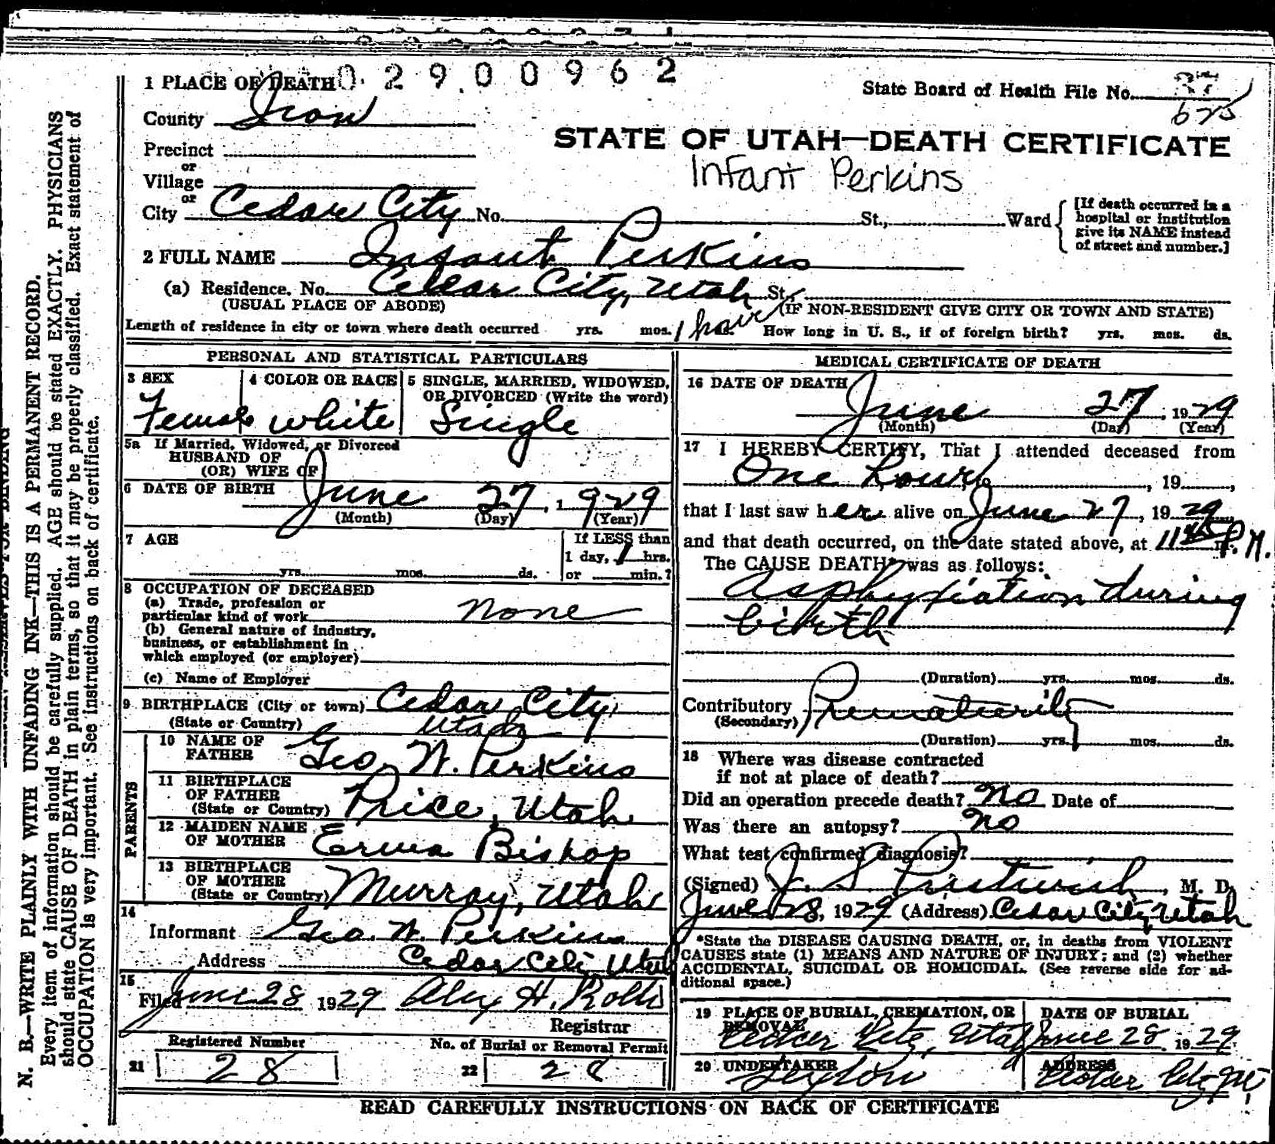 0 2 9 0 0 9 6 2
1 PLACE OF DEATH
State Board of Health File No. 37
625
County Iron
STATE OF UTAH—DEATH CERTIFICATE
Precinct
Infant Perkins
or
Village
or
City Cedar City No. St., Ward
[If death occurred in a
hospital or institution
give its NAME instead
of street and number.]
2 FULL NAME Infant Perkins
(a) Residence. No. Cedar City, Utah St.,
(USUAL PLACE OF ABODE) (IF NON-RESIDENT GIVE CITY OR TOWN AND STATE)
Length of residence in city or town where death occurred yrs. mos. 1 hour ds. How long in U. S., if of foreign birth? yrs. mos. ds.
PERSONAL AND STATISTICAL PARTICULARS
3 SEX 4 COLOR OR RACE 5 SINGLE, MARRIED, WIDOWED,
OR DIVORCED (Write the word)
Female White Single
5a If Married, Widowed, or Divorced
HUSBAND OF
(OR) WIFE OF
6 DATE OF BIRTH June 27, 1929
(Month) (Day) (Year)
7 AGE If LESS than
1 day, 1 hrs.
yrs. mos. ds. or min.?
8 OCCUPATION OF DECEASED
(a) Trade, profession or
particular kind of work none
(b) General nature of industry,
business, or establishment in
which employed (or employer)
(c) Name of Employer
9 BIRTHPLACE (City or town) Cedar City,
(State or Country) Utah
PARENTS
10 NAME OF
FATHER Geo. W. Perkins
11 BIRTHPLACE
OF FATHER
(State or Country) Price, Utah
12 MAIDEN NAME
OF MOTHER Erma Bishop
13 BIRTHPLACE
OF MOTHER
(State or Country) Murray, Utah
14
Informant Geo. W. Perkins
Address Cedar City Utah
15
Filed June 28 1929 Alex H. Rollo
Registrar
Registered Number No. of Burial or Removal Permit
21 28 22 28
MEDICAL CERTIFICATE OF DEATH
16 DATE OF DEATH
June 27, 1929
(Month) (Day) (Year)
17 I HEREBY CERTIFY, That I attended deceased from
One hour, 19,
that I last saw her alive on June 27, 1929
and that death occurred, on the date stated above, at P. M.
The CAUSE DEATH* was as follows:
Asphyxiation during
birth
(Duration) yrs. mos. ds.
Contributory Prematurity
(Secondary)
(Duration) yrs. mos. ds.
18 Where was disease contracted
if not at place of death?
Did an operation precede death? No Date of
Was there an autopsy? No
What test confirmed diagnosis?
(Signed) J. S. Prestwich, M. D.
June 28, 1929 (Address) Cedar City, Utah
*State the DISEASE CAUSING DEATH, or, in deaths from VIOLENT
CAUSES state (1) MEANS AND NATURE OF INJURY; and (2) whether
ACCIDENTAL, SUICIDAL OR HOMICIDAL. (See reverse side for ad-
ditional space.)
19 PLACE OF BURIAL, CREMATION, OR
REMOVAL DATE OF BURIAL
Cedar City, Utah June 28 1929
20 UNDERTAKER ADDRESS
Sexton Cedar City
READ CAREFULLY INSTRUCTIONS ON BACK OF CERTIFICATE
N. B.—WRITE PLAINLY WITH UNFADING INK—THIS IS A PERMANENT RECORD.
Every item of information should be carefully supplied. AGE should be stated EXACTLY. PHYSICIANS
should state CAUSE OF DEATH in plain terms, so that it may be properly classified. Exact statement of
OCCUPATION is very important. See instructions on back of certificate.